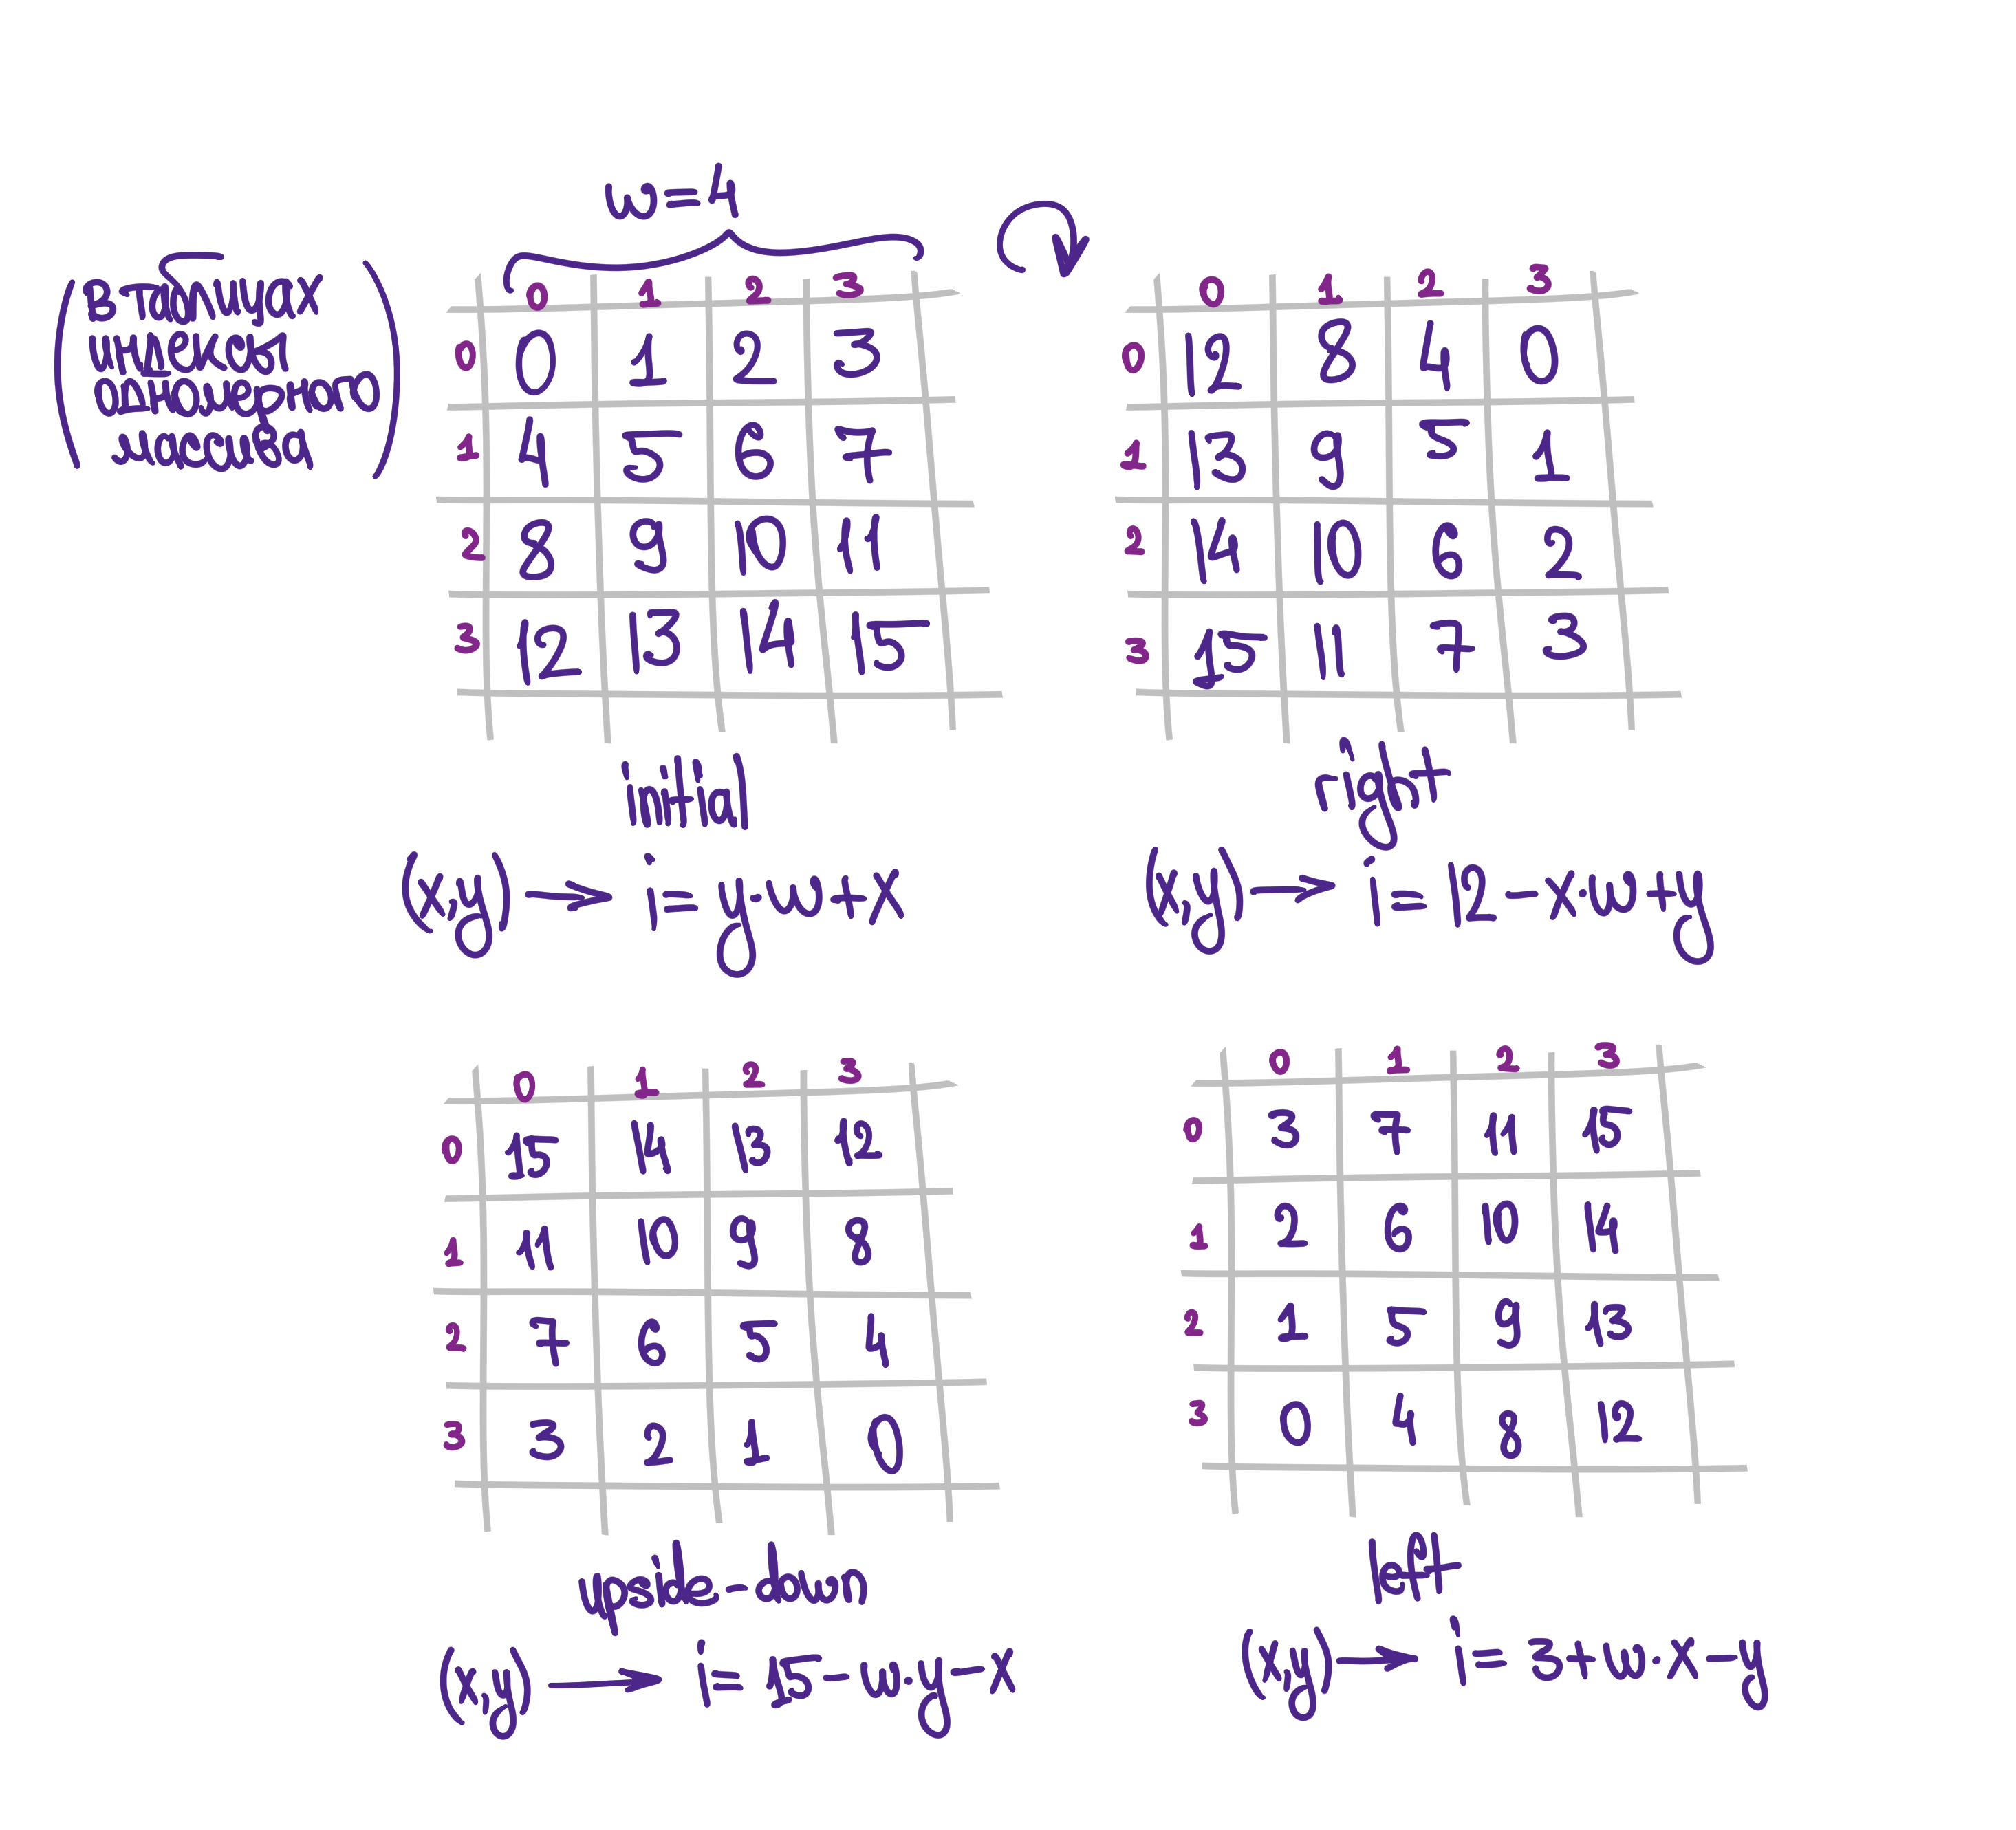 w=4
(в таблицах
индексы
одномерного
массива)
0 1 2 3
0 0 1 2 3
1 4 5 6 7
2 8 9 10 11
3 12 13 14 15
initial
(x,y) → i = y·w + x
0 1 2 3
0 12 8 4 0
1 13 9 5 1
2 14 10 6 2
3 15 11 7 3
right
(x,y) → i = 12 − x·w + y
0 1 2 3
0 15 14 13 12
1 11 10 9 8
2 7 6 5 4
3 3 2 1 0
upside-down
(x,y) → i = 15 − w·y − x
0 1 2 3
0 3 7 11 15
1 2 6 10 14
2 1 5 9 13
3 0 4 8 12
left
(x,y) → i = 3 + w·x − y